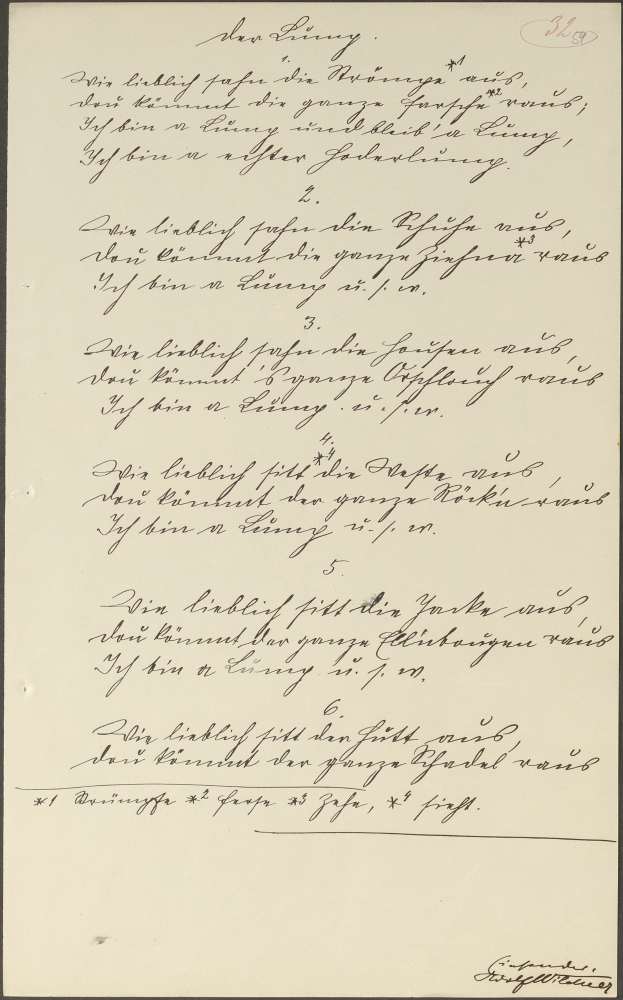 Der Lump.
32
59
1.
Wie lieblich sahn die Strömpe *1 aus,
Dou kömmt die ganze Farsche *2 raus;
Ich bin a Lump und bleib' a Lump,
Ich bin a echter Hoderlump.
2.
Wie lieblich sahn die Schuhe aus,
Dou kömmt die ganze Ziehna *3 raus
Ich bin a Lump u. s. w.
3.
Wie lieblich sahn die Housen aus,
Dou kömmt 's ganze Orschlouch raus
Ich bin a Lump u. s. w.
4.
Wie lieblich sitt *4 die Weste aus,
Dou kömmt der ganze Röck'n raus
Ich bin a Lump u. s. w.
5.
Wie lieblich sitt die Jacke aus,
Dou kömmt der ganze Ellnbougen raus
Ich bin a Lump u. s. w.
6.
Wie lieblich sitt der Hutt aus,
Dou kömmt der ganze Schadel raus
*1 Strümpfe *2 Ferse *3 Zehe, *4 sieht.
Einsender:
Adolf